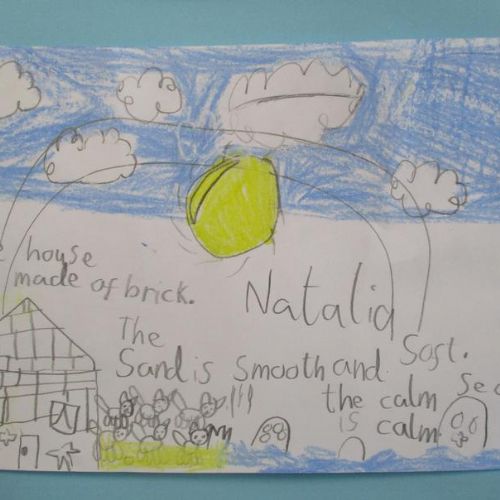 house
made of brick.
Natalia
The
Sand is smooth and Soft.
the calm Sea
is calm